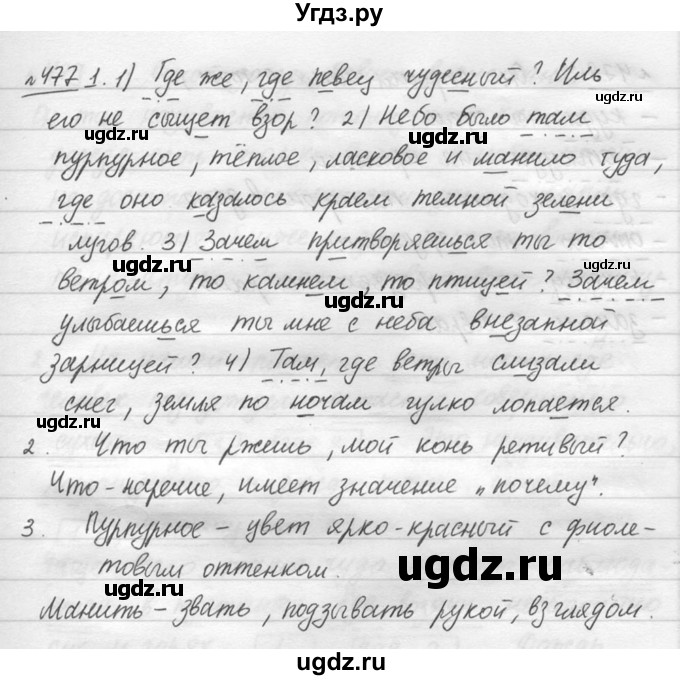 Угдз.ру
№477 1. 1) Где же, где певец чудесный? Иль
его не сыщет взор? 2) Небо было там
пурпурное, тёплое, ласковое и манило туда,
где оно казалось краем темной зелени
лугов. 3) Зачем притворяешься ты то
ветром, то камнем, то птицей? Зачем
улыбаешься ты мне с неба внезапной
зарницей? 4) Там, где ветры слизали
снег, земля по ночам гулко лопается.
2. Что ты ржешь, мой конь ретивый?
Что - наречие, имеет значение „почему".
3. Пурпурное - цвет ярко-красный с фиоле-
товым оттенком.
Манить - звать, подзывать рукой, взглядом.
ugdz.ru
ugdz.ru
ugdz.ru
ugdz.ru
ugdz.ru
ugdz.ru
ugdz.ru
ugdz.ru
ugdz.ru
ugdz.ru
ugdz.ru